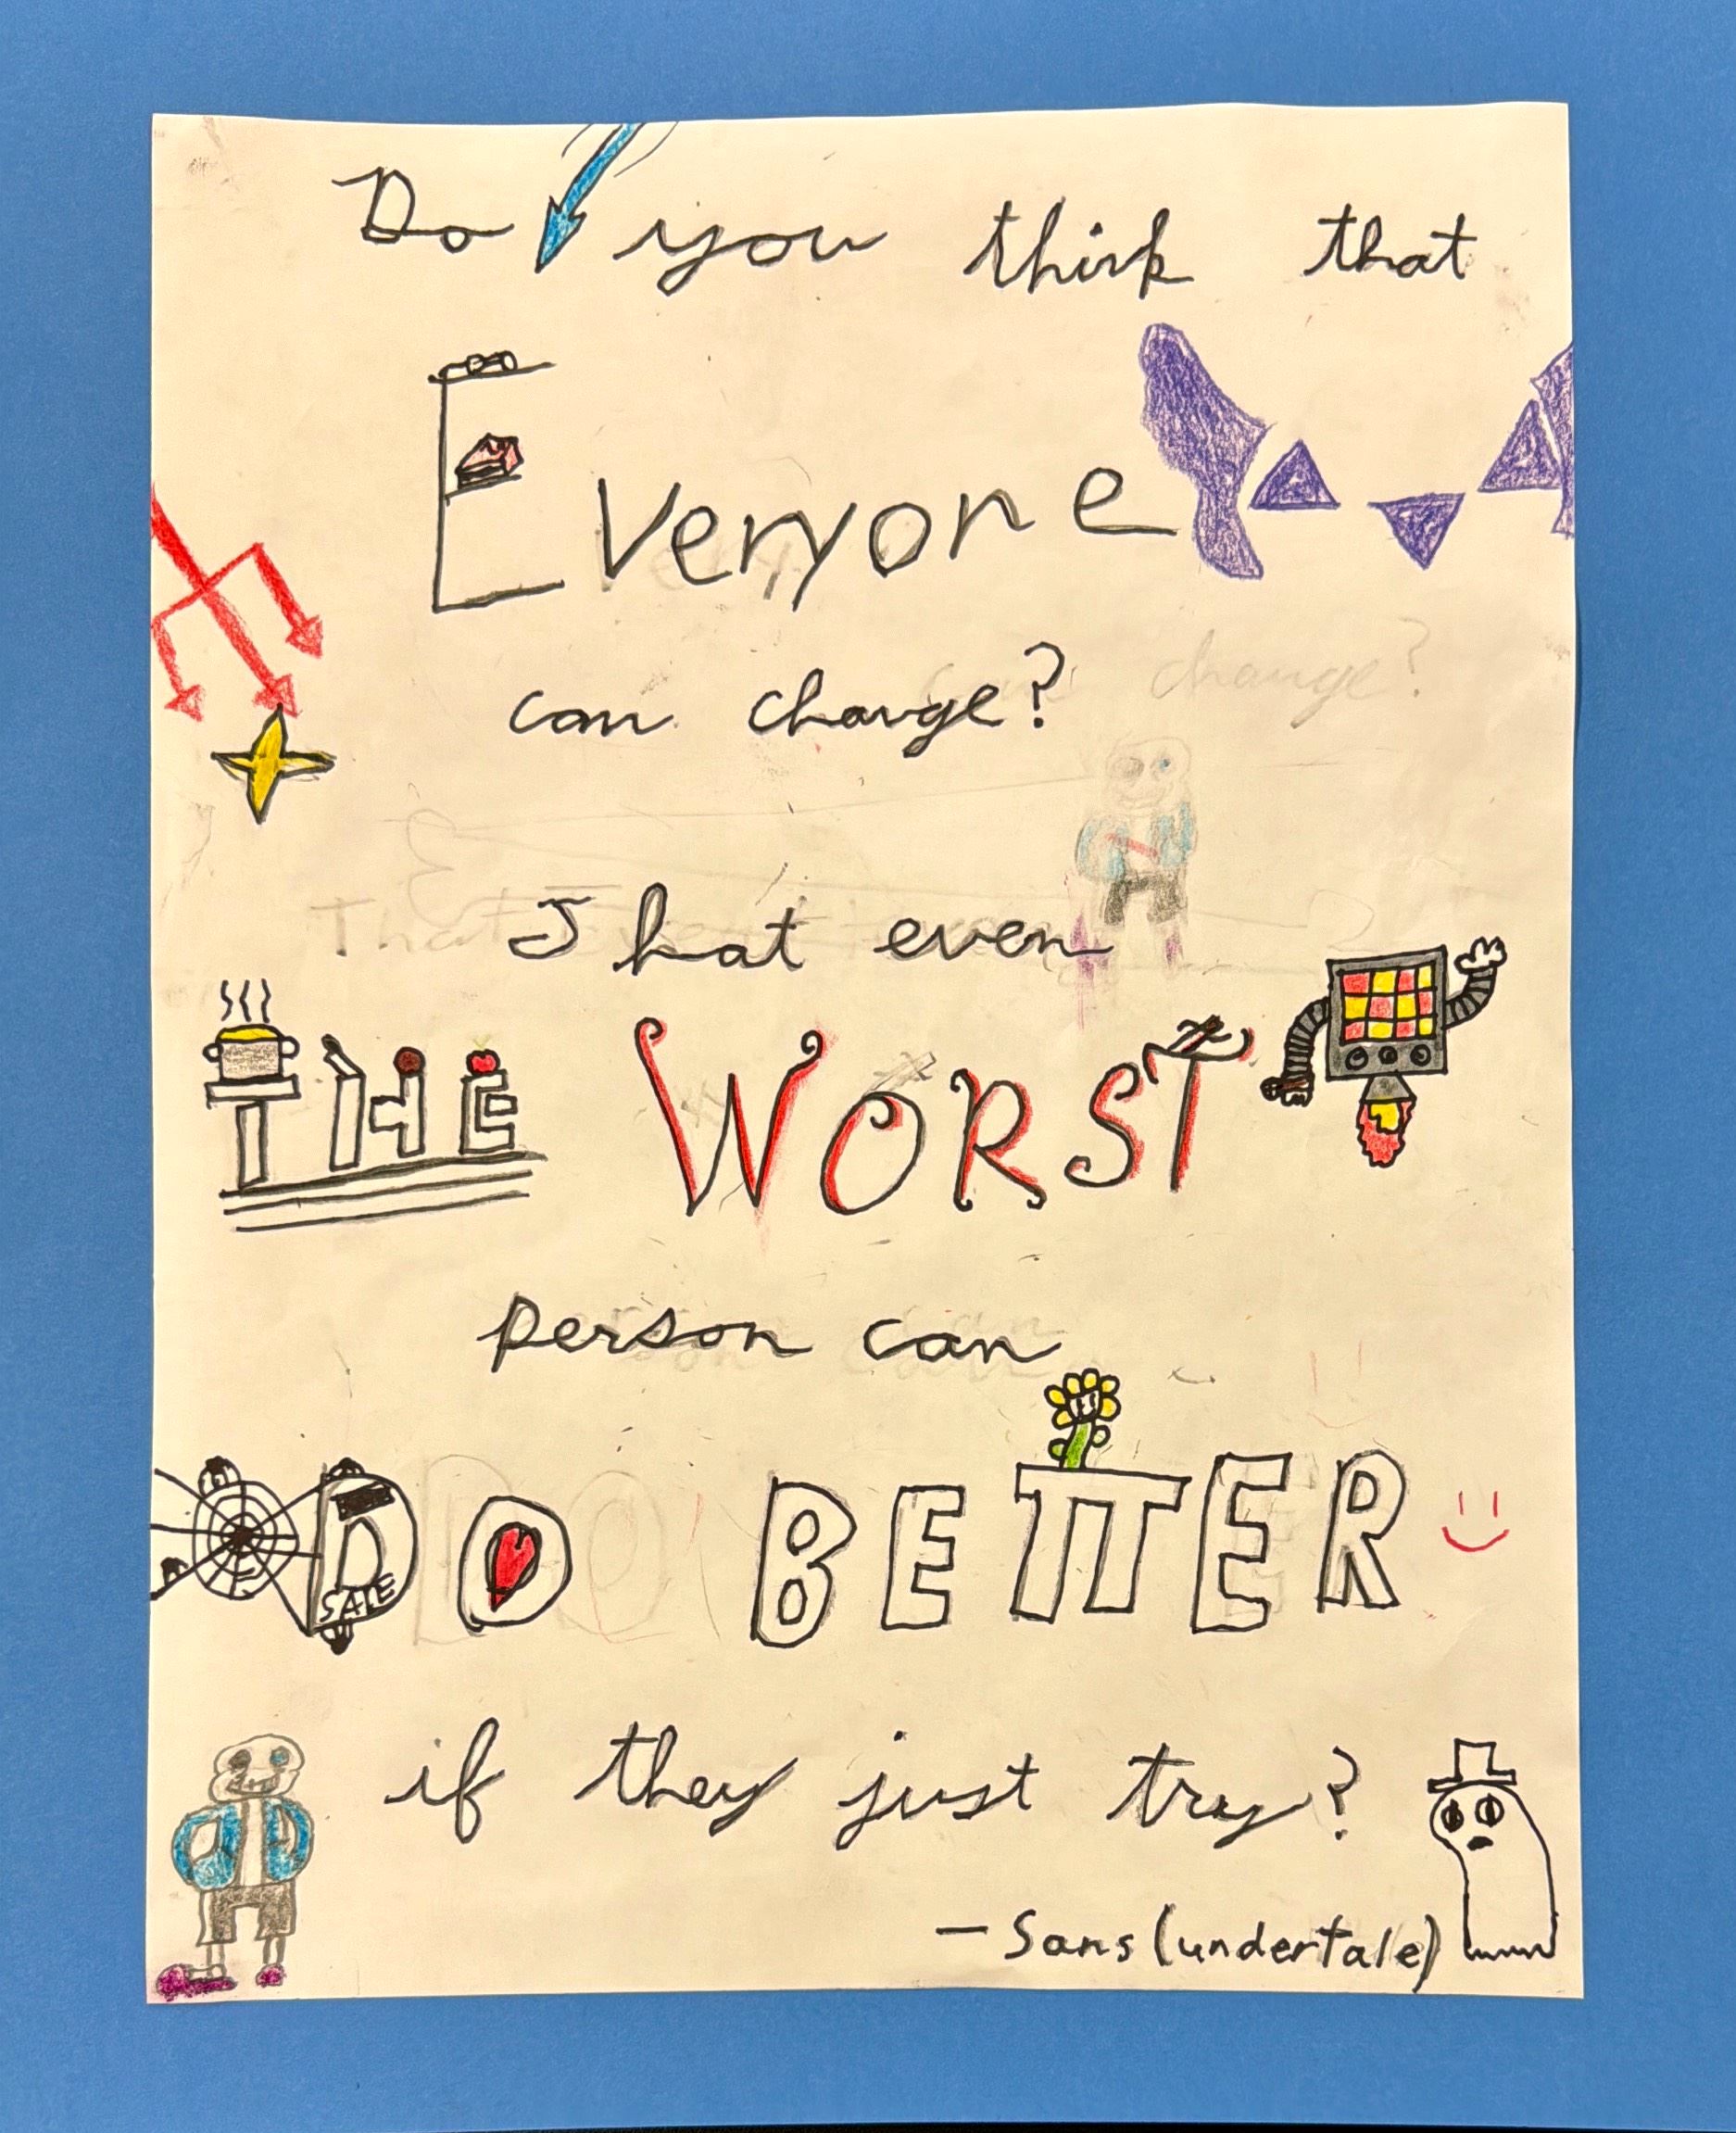 Do you think that
Everyone
can change?
That even
THE WORST
person can
DO BETTER
SALE
if they just try?
— Sans (undertale)